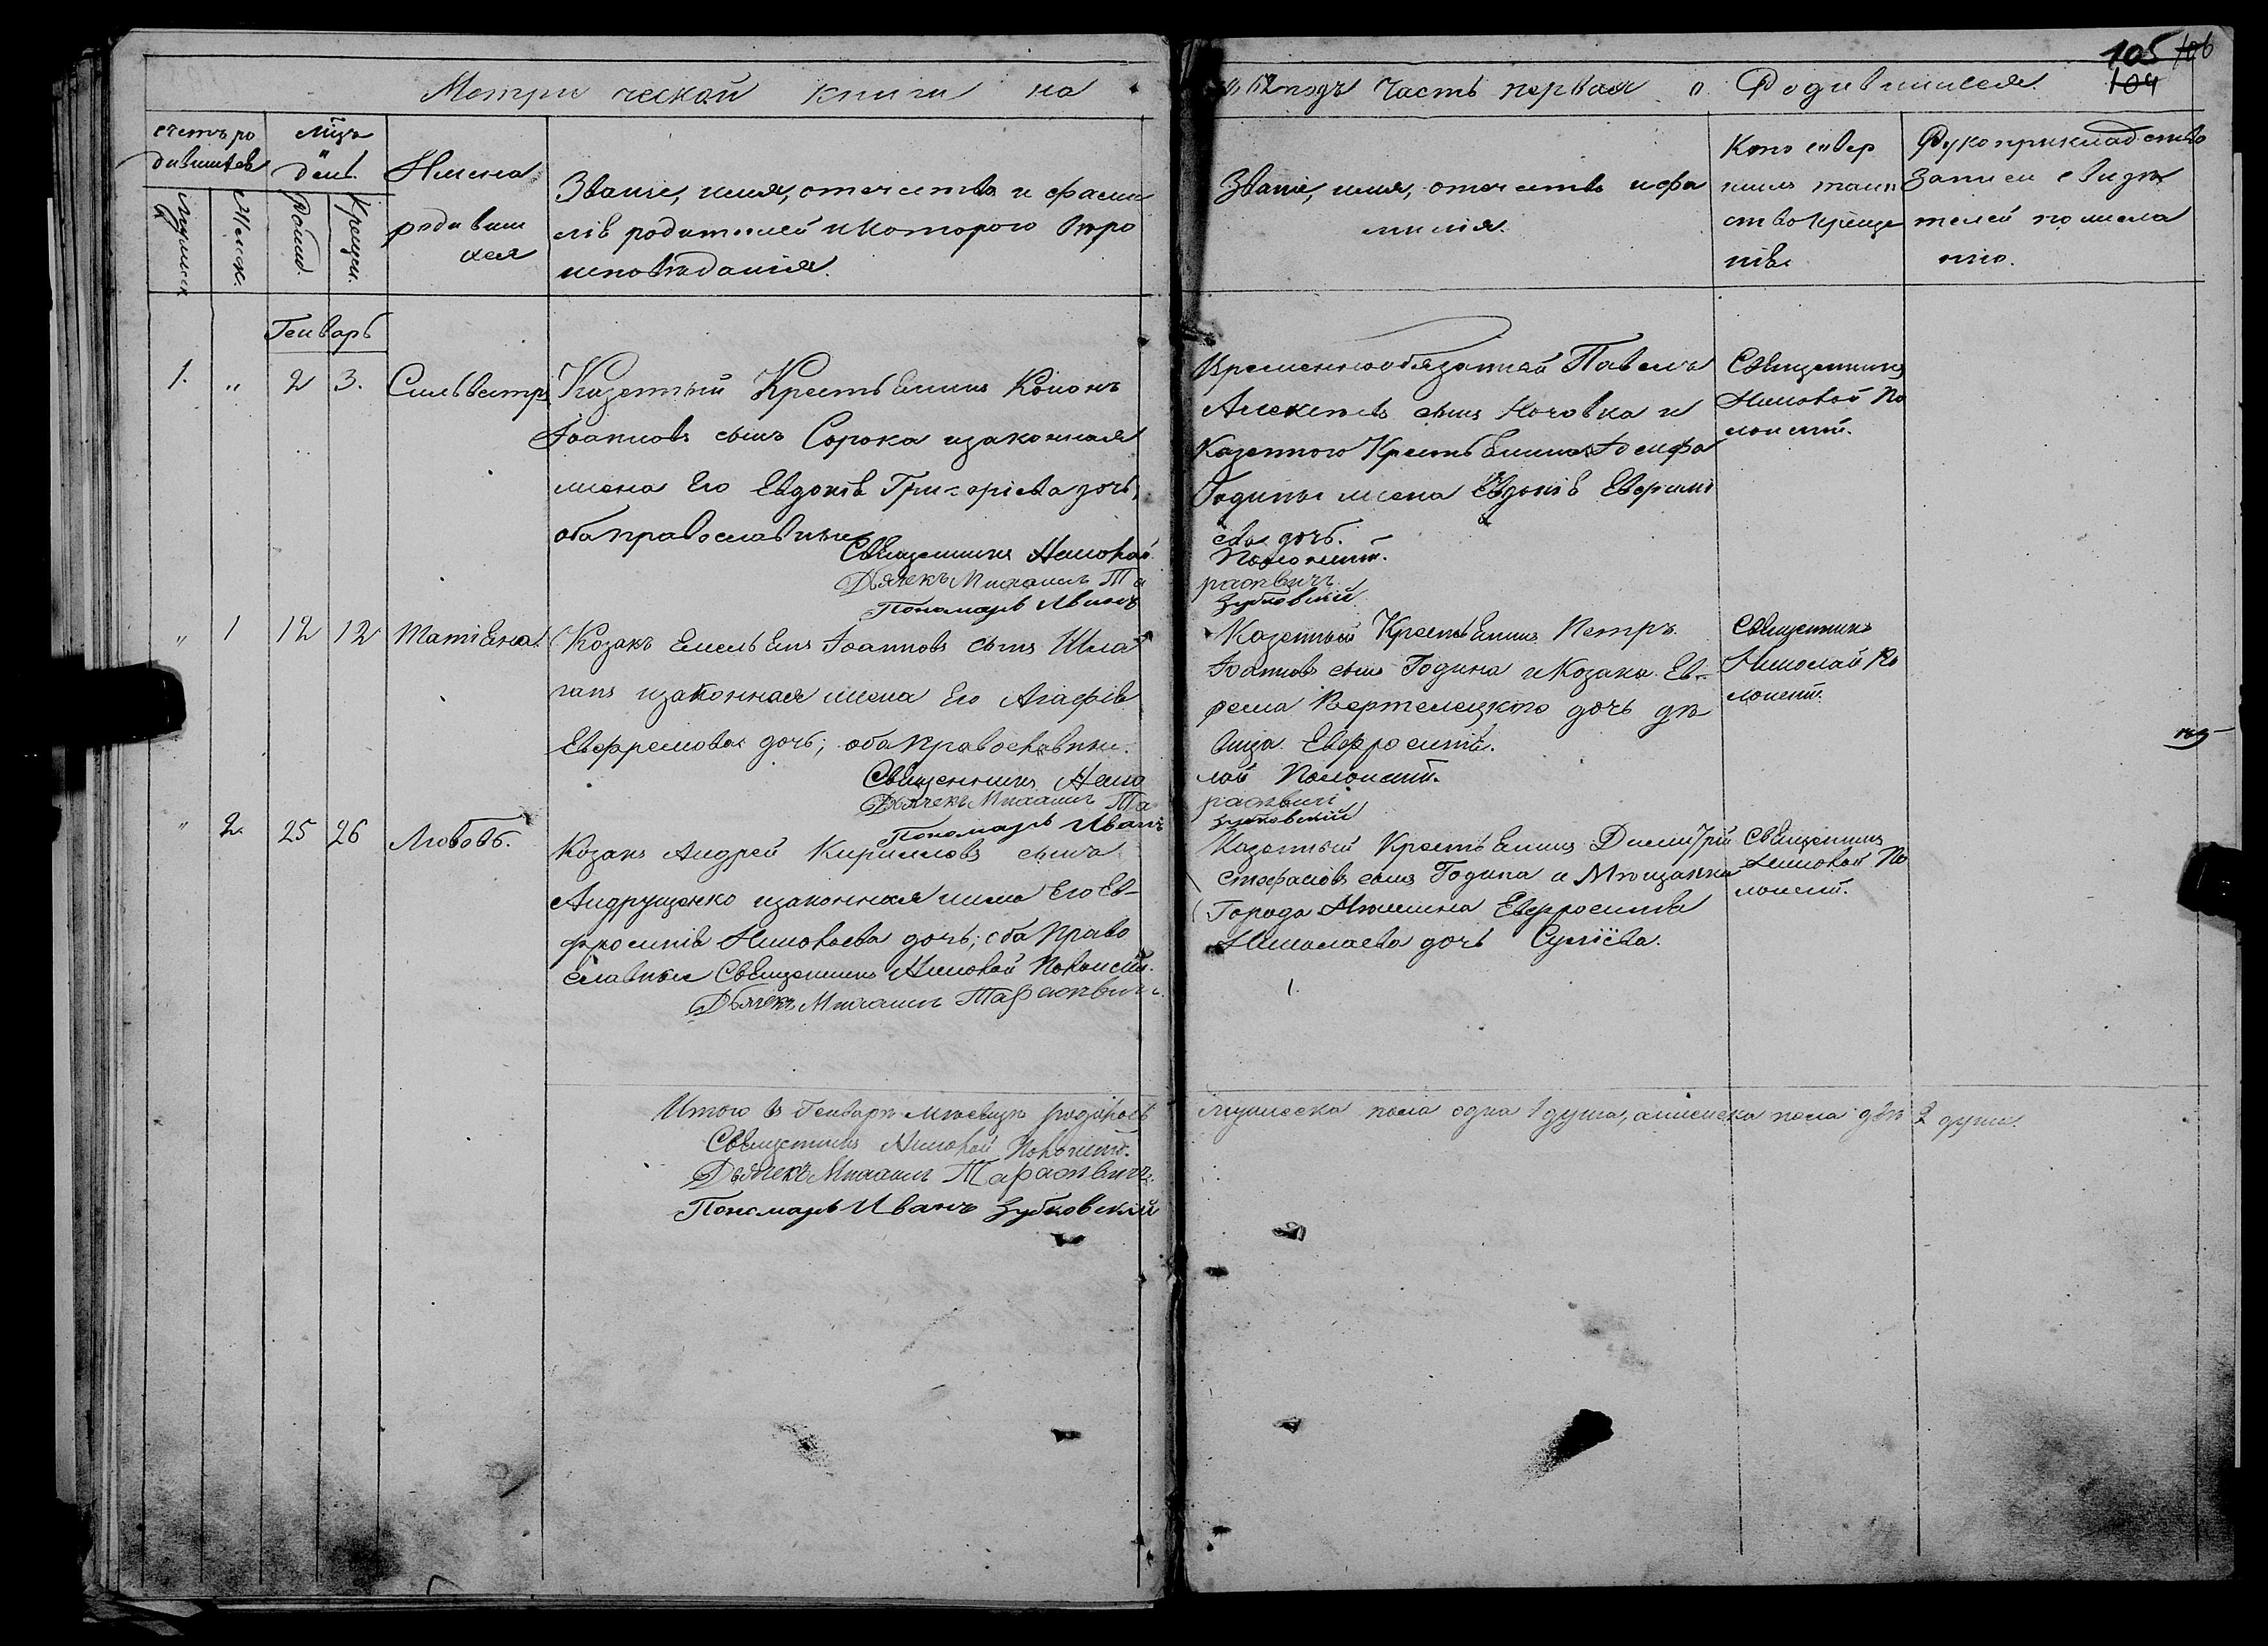 105 106
104
Метри ческой книги на
годъ Часть первая о Родившихся
счетъ ро
дившихся
Мужеск
Женск.
мцъ
и
день.
Рожд.
Крещен.
Имена
родивши
хся
Званіе, имя, отечество и фами
лія родителей и которого веро
исповѣданія.
Званіе, имя, отечество и фа
милія.
Кто совер
шилъ таин
ство креще
нія
Рукоприкладство
записи свидѣ
телей по жела
нію.
Генварь
1. „ 2 3. Сильвестръ
Казенный Крестьянинъ Кононъ
Іоанновъ сынъ Сорока и законная
жена Его Евдокія Григоріева дочь,
оба православные
Священникъ Николай
Дьячекъ Михаилъ Та
Пономарь Иванъ
Временнообязанный Павелъ
Алексѣевъ сынъ Кочовка и
Казенного Крестьянина Іосифа
Годины жена Евдокія Ефремі
ева дочь.
Полонскій.
расевичъ
Зубковскій
Священникъ
Николай По
лонскій.
„ 1 12 12 Татіяна.
Козакъ Емельянъ Іоанновъ сынъ Шма
ганъ и законная жена Его Агафія
Евфремова дочь; оба православные.
Священникъ Нико
Дьячекъ Михаилъ Та
Пономарь Иванъ
Казенный Крестьянинъ Петръ
Іоанновъ сынъ Година и Козака Ев-
рема Вертелецкого дочь дѣ
вица Евфросинія.
лай Полонскій.
расевичъ
Зубковскій
Священникъ
Николай По
лонскій.
„ 2. 25 26 Любовь.
Козакъ Андрей Кирилловъ сынъ
Андрущенко и законная жена Его Ев-
фросинія Николаева дочь; оба право
славные Священникъ Николай Полонскій.
Дьячекъ Михаилъ Тарасевичъ.
Казенный Крестьянинъ Димитрій
Стефановъ сынъ Година и Мѣщанка
Города Нѣжина Евфросинія
Николаева дочь Сулієва.
Священникъ
Николай По
лонскій.
Итого въ Генварѣ мѣсяцѣ родилось
мужеска пола одна 1 душа, а женска пола двѣ 2 души.
Священникъ Николай Полонскій.
Дьячекъ Михаилъ Тарасевичъ.
Пономарь Иванъ Зубковскій